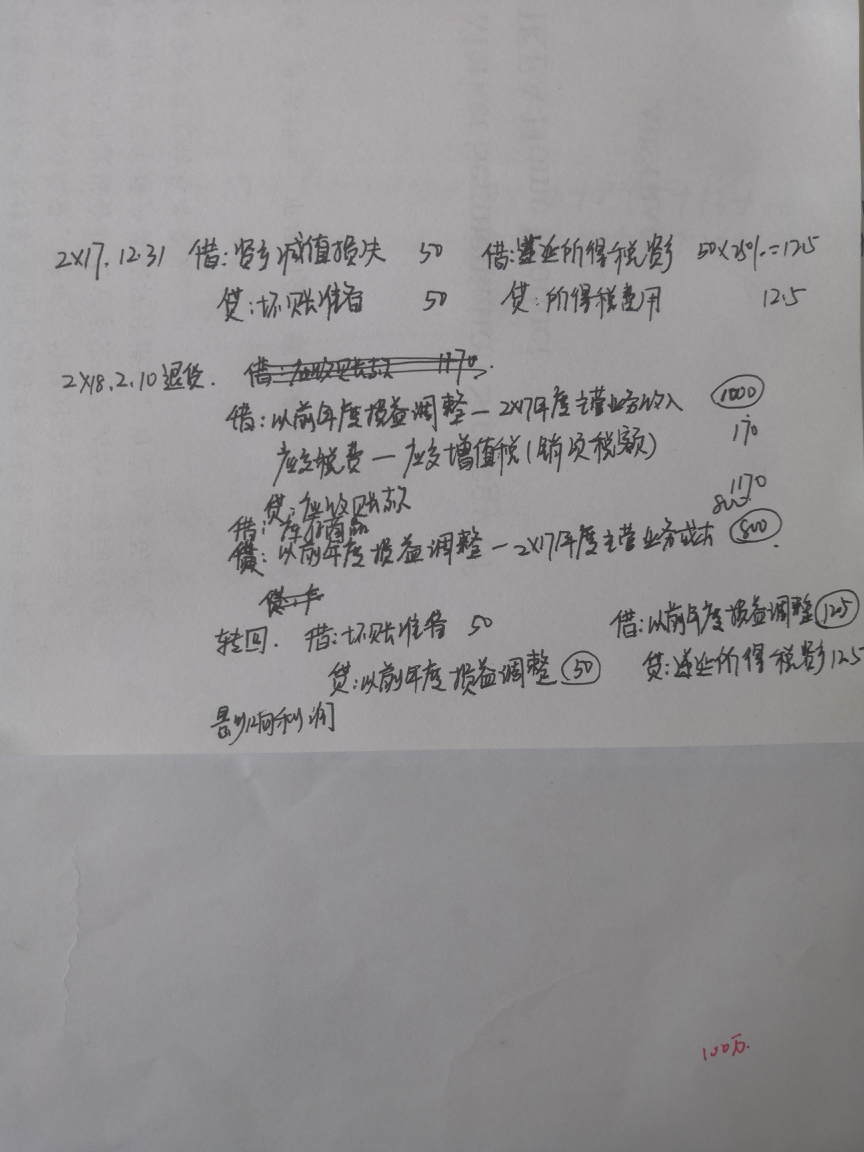 2×17.12.31 借:资产减值损失 50 借:递延所得税资产 50×25%=12.5
贷:坏账准备 50 贷:所得税费用 12.5
2×18.2.10退货. 借:应收账款 1170
借:以前年度损益调整—2×17年度主营业务收入 1000
应交税费—应交增值税(销项税额) 170
贷:应收账款 1170
借:库存商品 800
贷:以前年度损益调整—2×17年度主营业务成本 800
转回. 借:坏账准备 50 借:以前年度损益调整 12.5
贷:以前年度损益调整 50 贷:递延所得税资产 12.5
利润
100万.